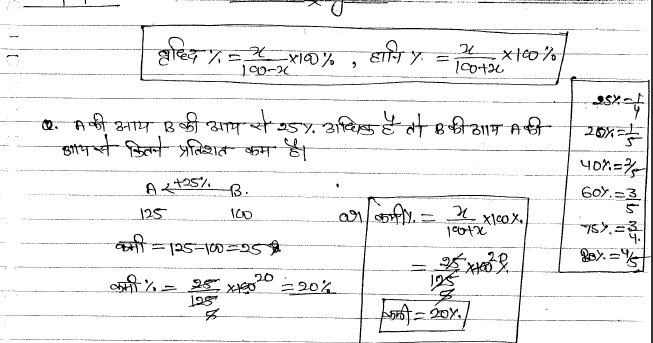 वृध्दि % = x/100-x ×100% , हानि % = x/100+x ×100%
Q. A की आय B की आय से 25% अधिक है तो B की आय A की
आय से कितने प्रतिशत कम है।
A <+25% B.
125 100
कमी = 125-100 = 25
कमी % = 25/125 ×100 20 = 20%
5
कमी % = x/100+x ×100%
= 25/125 ×100 20 %
5
कमी = 20%
25% = 1/4
20% = 1/5
40% = 2/5
60% = 3/5
75% = 3/4.
80% = 4/5